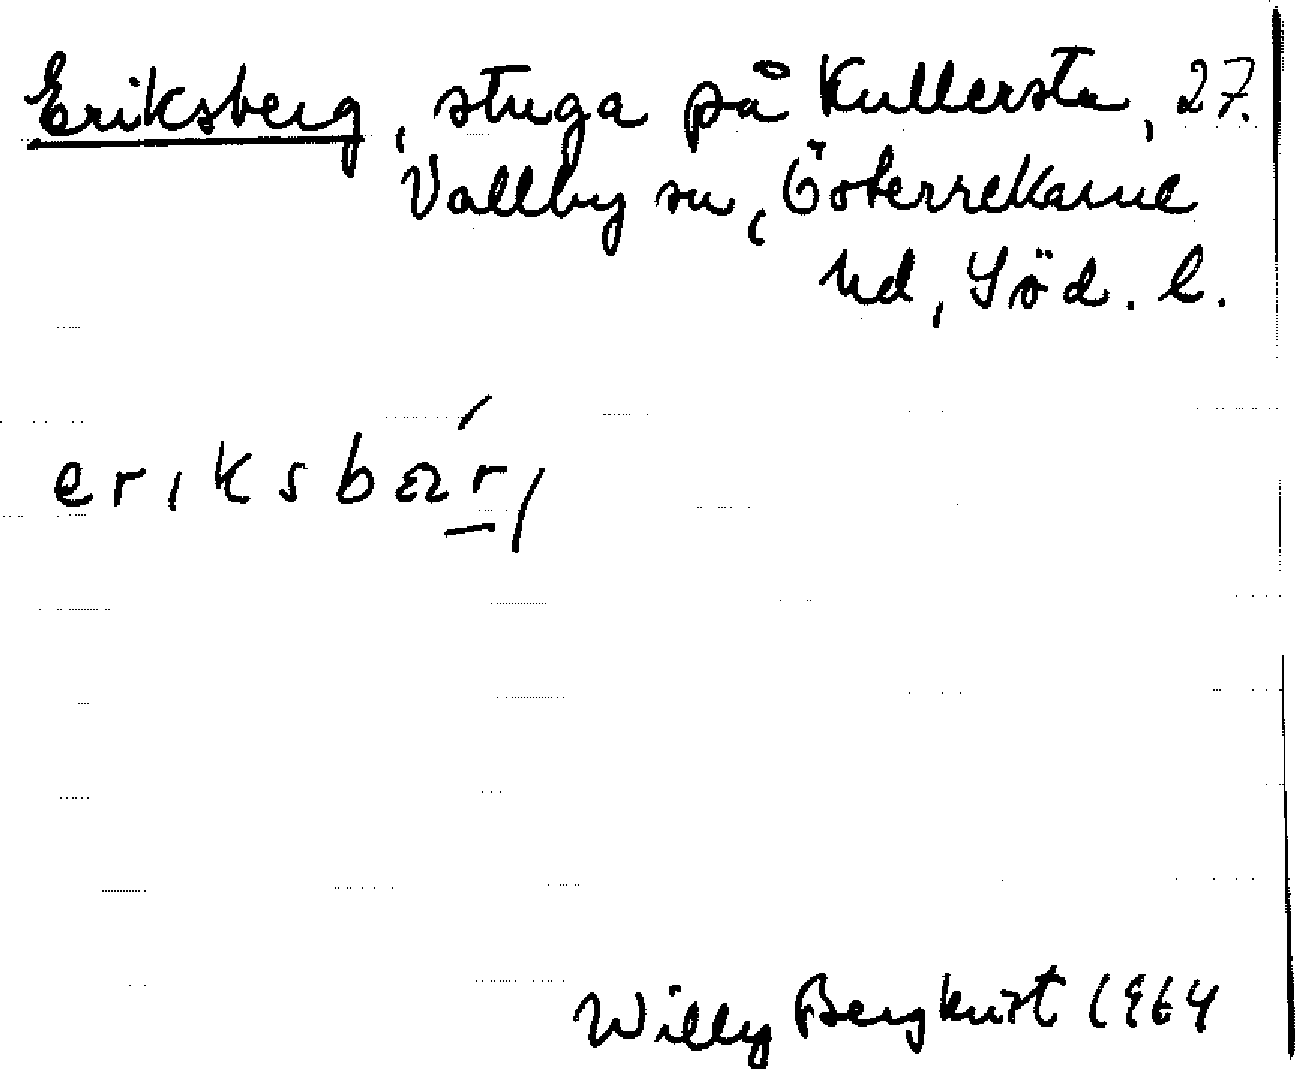 Eriksberg, stuga på Kullersta, 27.
Vallby sn, Österrekarne
hd, Söd. l.
eriksbær,
Willy Bergkvist 1964